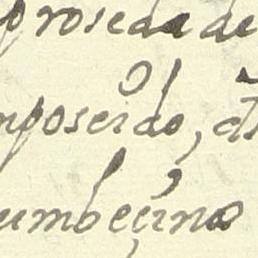 proseda de
mposeido,
umbeçino